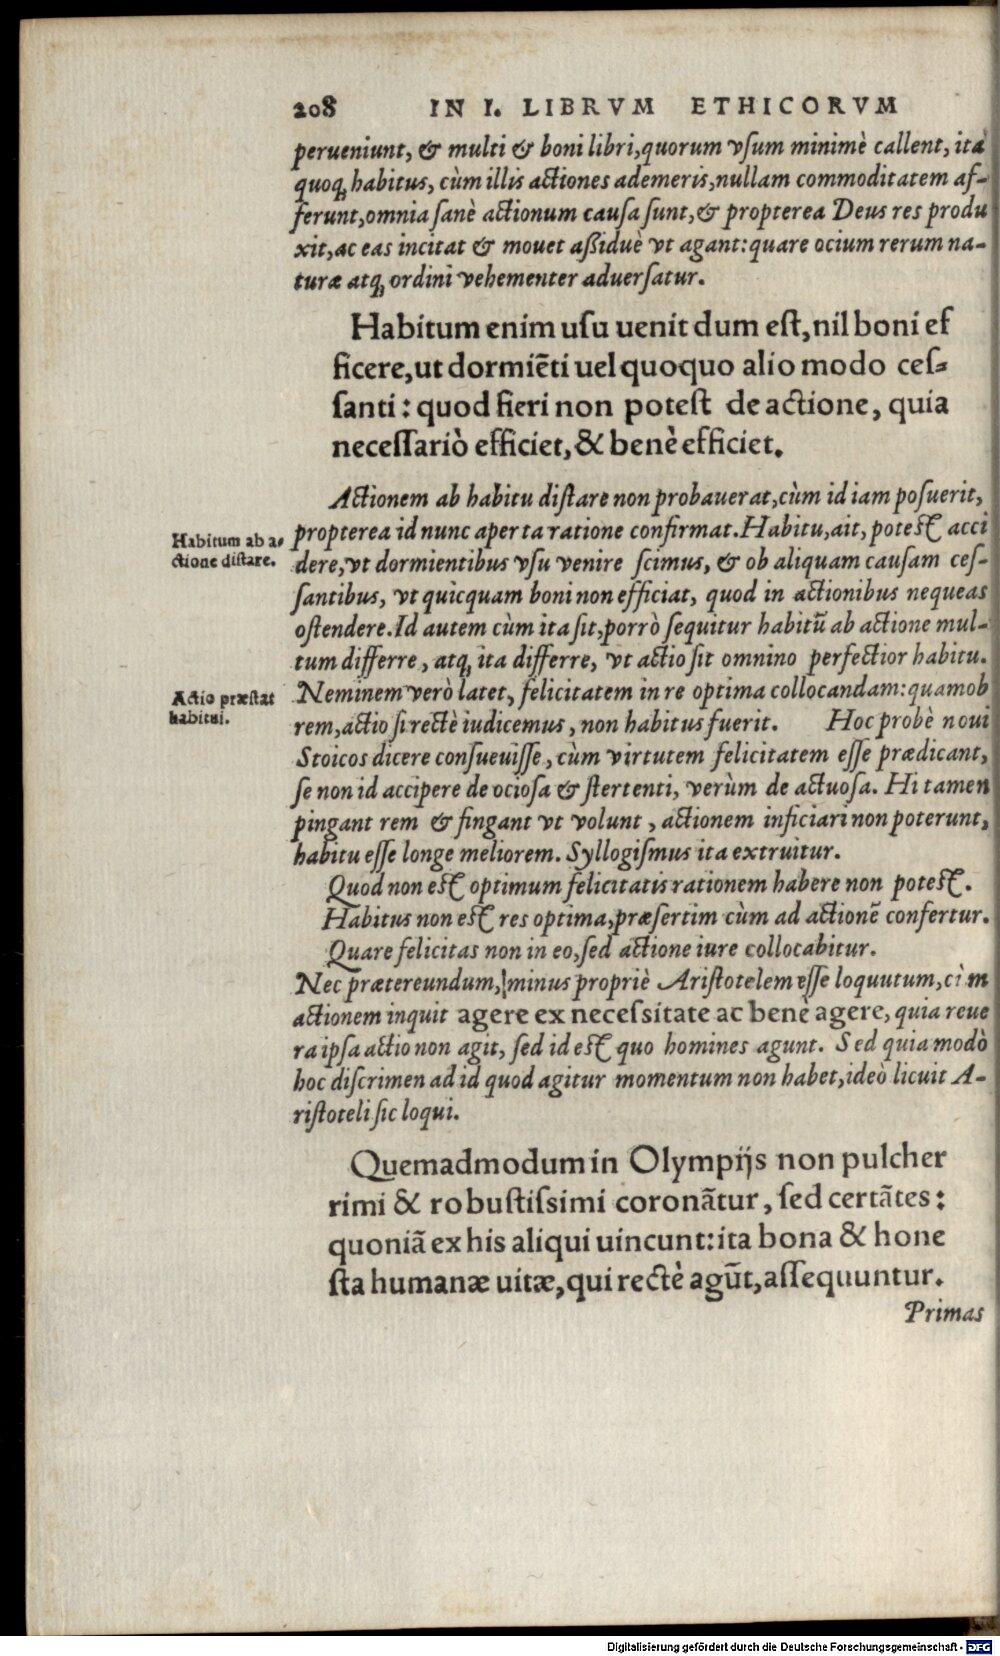 208 IN I. LIBRVM ETHICORVM
perueniunt, & multi & boni libri, quorum vsum minimè callent, ità
quoq; habitus, cùm illis actiones ademeris, nullam commoditatem af-
ferunt, omnia sanè actionum causa sunt, & propterea Deus res produ
xit, ac eas incitat & mouet aßiduè vt agant: quare ocium rerum na-
turæ atq; ordini vehementer aduersatur.
Habitum enim usu uenit dum est, nil boni ef
ficere, ut dormiẽti uel quoquo alio modo ces-
santi: quod fieri non potest de actione, quia
necessariò efficiet, & benè efficiet.
Actionem ab habitu distare non probauerat, cùm id iam posuerit,
Habitum ab a-
ctione distare.
propterea id nunc aperta ratione confirmat. Habitu, ait, potest acci
dere, vt dormientibus vsu venire scimus, & ob aliquam causam ces-
santibus, vt quicquam boni non efficiat, quod in actionibus nequeas
ostendere. Id autem cùm ita sit, porrò sequitur habitũ ab actione mul-
tum differre, atq; ita differre, vt actio sit omnino perfectior habitu.
Actio præstat
habitui.
Neminem verò latet, felicitatem in re optima collocandam: quamob
rem, actio si rectè iudicemus, non habitus fuerit. Hoc probè noui
Stoicos dicere consueuisse, cùm virtutem felicitatem esse prædicant,
se non id accipere de ociosa & stertenti, verùm de actuosa. Hi tamen
pingant rem & fingant vt volunt, actionem inficiari non poterunt,
habitu esse longe meliorem. Syllogismus ita extruitur.
Quod non est optimum felicitatis rationem habere non potest.
Habitus non est res optima, præsertim cùm ad actionẽ confertur.
Quare felicitas non in eo, sed actione iure collocabitur.
Nec prætereundum, minus propriè Aristotelem esse loquutum, cùm
actionem inquit agere ex necessitate ac benè agere, quia reue
ra ipsa actio non agit, sed id est quo homines agunt. Sed quia modò
hoc discrimen ad id quod agitur momentum non habet, ideò licuit A-
ristoteli sic loqui.
Quemadmodum in Olympijs non pulcher
rimi & robustissimi coronãtur, sed certãtes:
quoniã ex his aliqui uincunt: ita bona & hone
sta humanæ uitæ, qui rectè agũt, assequuntur.
Primas
Digitalisierung gefördert durch die Deutsche Forschungsgemeinschaft - DFG